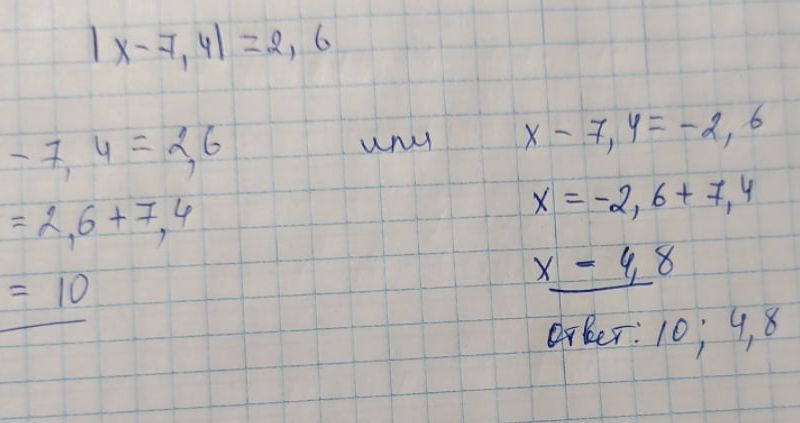 |x-7,4|=2,6
-7,4=2,6 или x-7,4=-2,6
=2,6+7,4 x=-2,6+7,4
= 10 x = 4,8
ответ: 10; 4,8